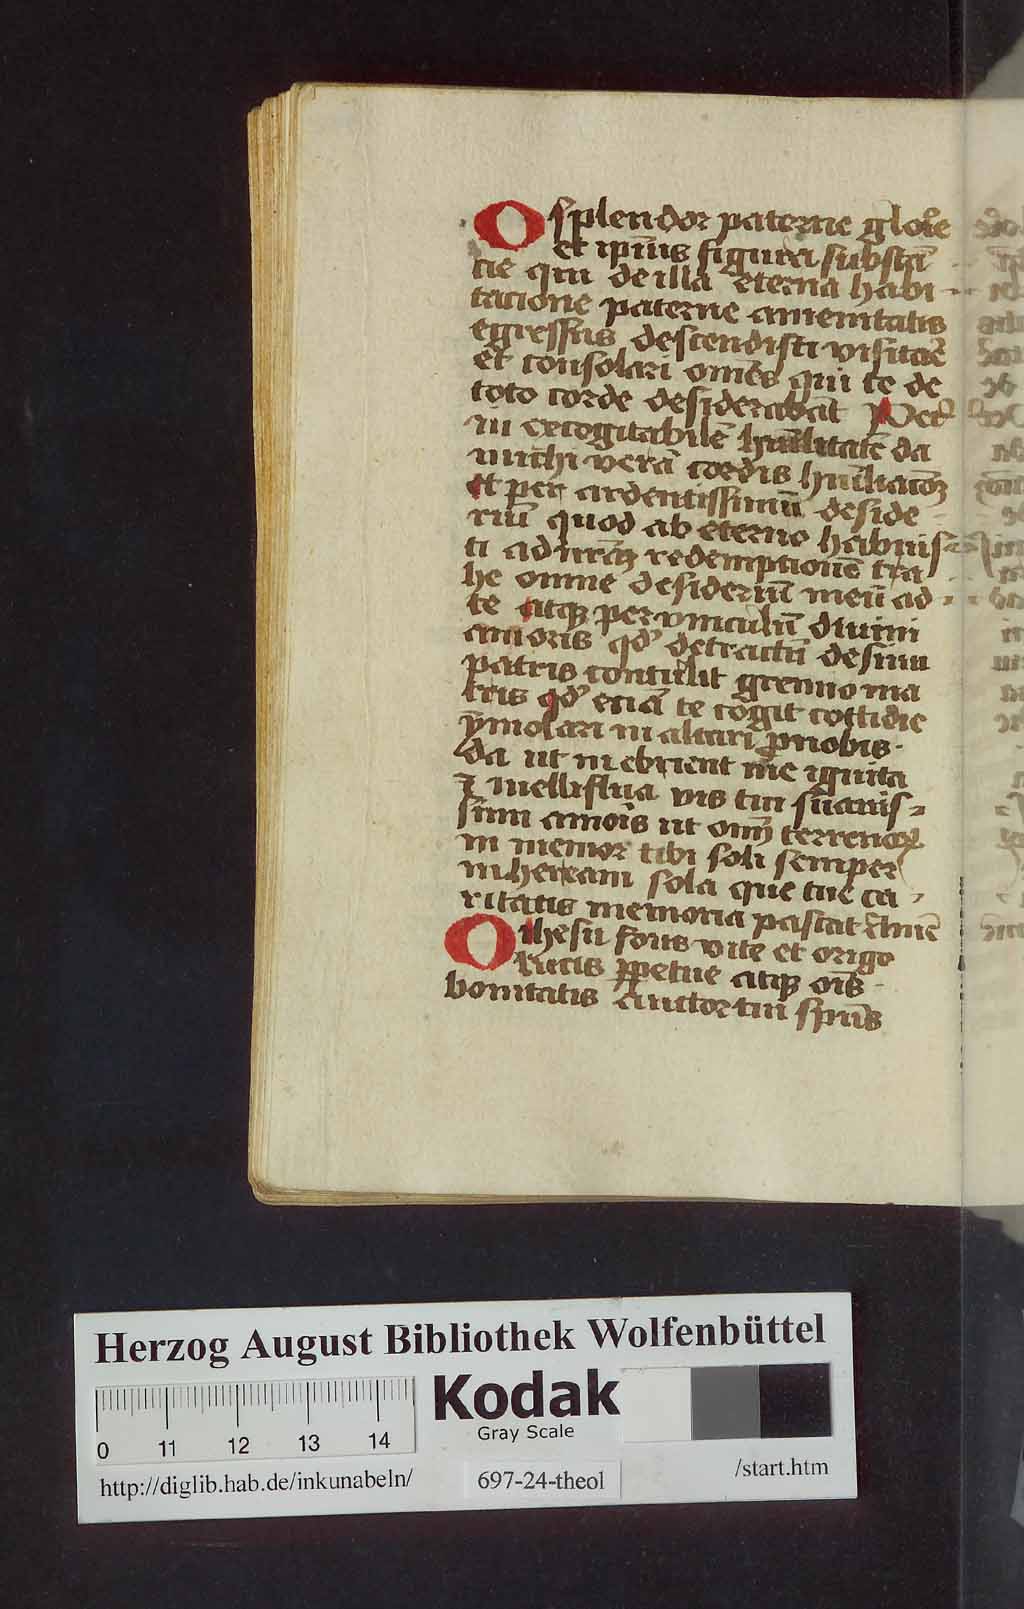 O splendor paterne glorie
et ip̄ius figura substā
cie qui de illa eterna habi
tacione paterne amenitatis
egressus descendisti visitar̄
et consolari om̄es qui te de
toto corde desiderabāt Ped
in excogitabilē hūilitatē da
michi verā cordis hūiliatōꝫ
et per ardentissimū deside
riū quod ab eterno habuis
ti ad nrāꝫ redemptionē tra
he omne desideriū meū ad
te atqꝫ per vinculū diuini
amoris qđ detractū de sinu
patris contulit gremio ma
tris qđ eciā te cogit cottidie
ymolari in altari pro nobis
Da ut in ebrient me ignita
⁊ melliflua vis tui suauis
simi amoris ut om̄ terrenoꝝ
in memor tibi soli semper
inheream sola que tue ca
ritatis memoria pascat Amē
O ihesu fons vite et origo
lucis ꝑpetue atqꝫ oīs
bonitatis auctor tui sp̄us
Herzog August Bibliothek Wolfenbüttel
Kodak
Gray Scale
0 11 12 13 14
http://diglib.hab.de/inkunabeln/
697-24-theol
/start.htm